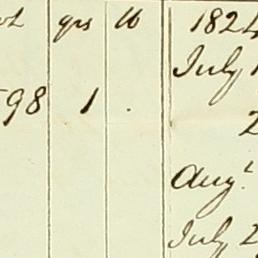 qrs lb 1824
July 1
98 1 .
2
Augt
July 2